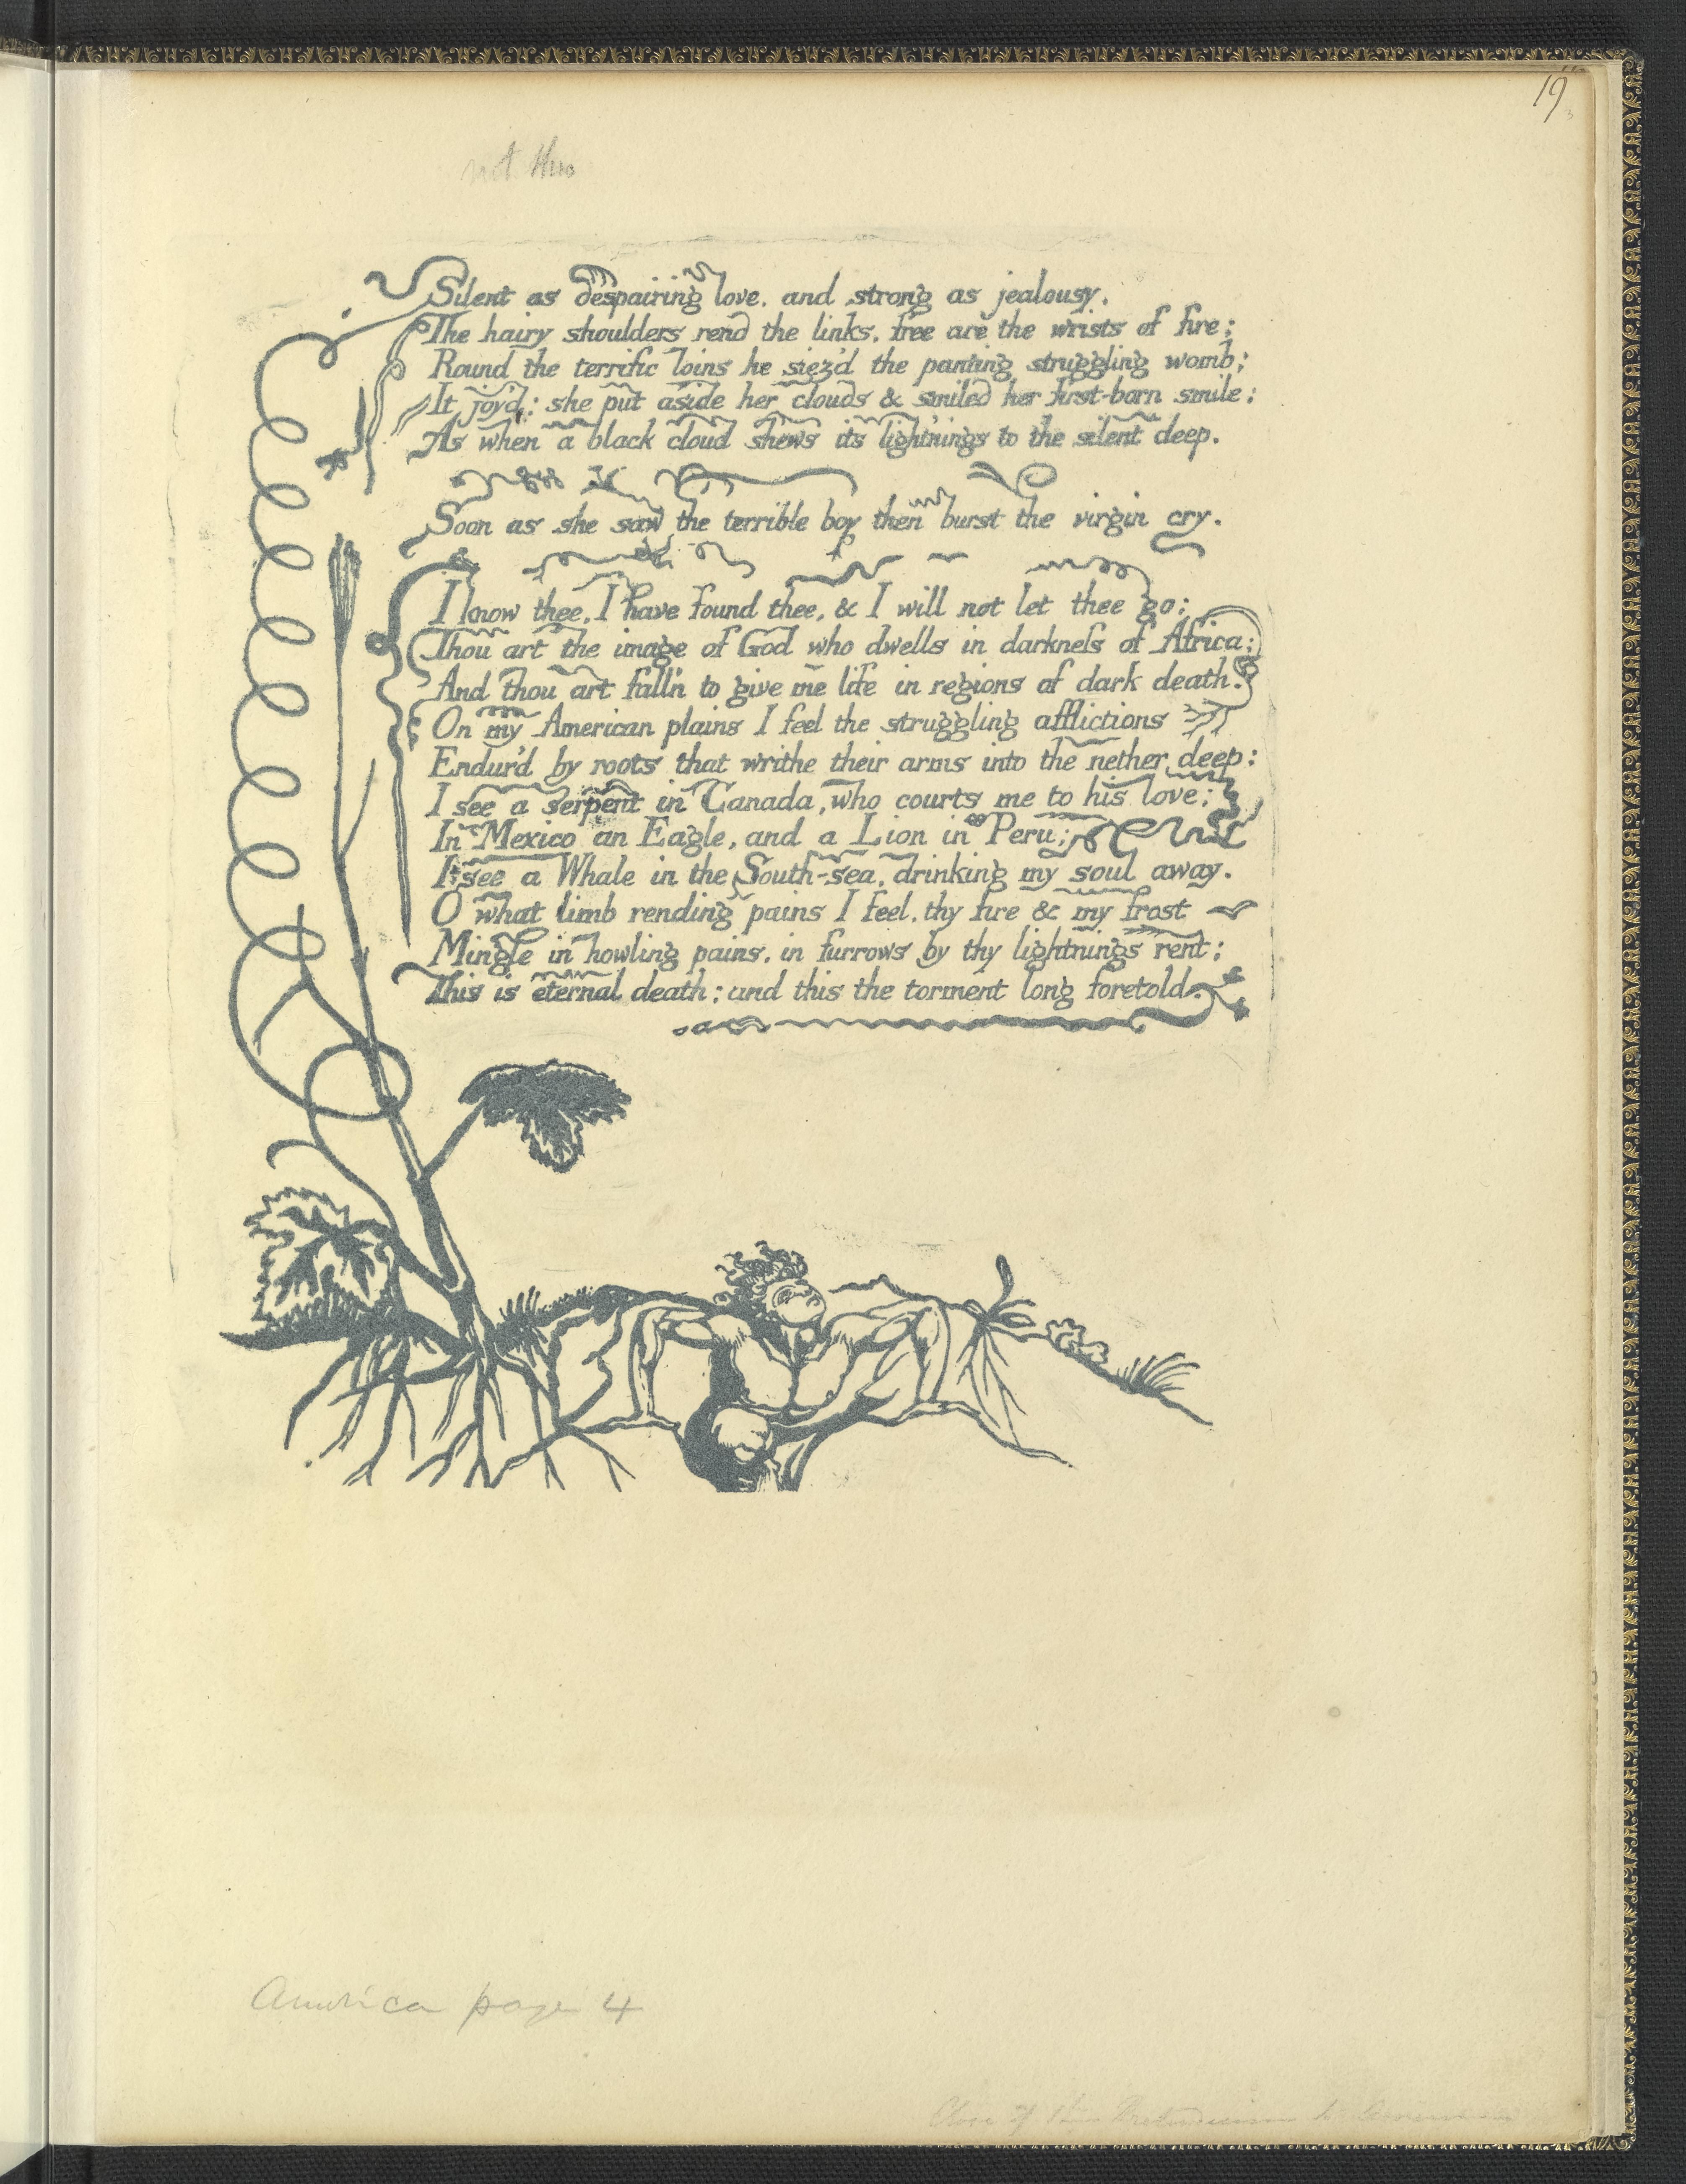 19
not this
Silent as despairing love, and strong as jealousy,
The hairy shoulders rend the links, free are the wrists of fire;
Round the terrific loins he siez'd the panting struggling womb;
It joy'd: she put aside her clouds & smiled her first-born smile;
As when a black cloud shews its lightnings to the silent deep.
Soon as she saw the terrible boy then burst the virgin cry.
I know thee, I have found thee, & I will not let thee go;
Thou art the image of God who dwells in darkness of Africa;
And thou art fall'n to give me life in regions of dark death.
On my American plains I feel the struggling afflictions
Endur'd by roots that writhe their arms into the nether deep:
I see a serpent in Canada, who courts me to his love;
In Mexico an Eagle, and a Lion in Peru;
I see a Whale in the South-sea, drinking my soul away.
O what limb rending pains I feel, thy fire & my frost
Mingle in howling pains, in furrows by thy lightnings rent;
This is eternal death; and this the torment long foretold.
America page 4
Close of the Preludium to America